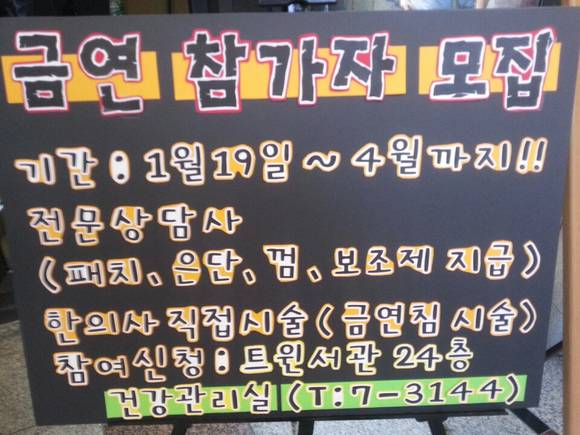 금연 참가자 모집
기간 : 1월19일 ~ 4월까지!!
전문상담사
(패치, 은단, 껌, 보조제 지급)
한의사 직접시술 (금연침 시술)
참여신청 : 트윈서관 24층
건강관리실 (T:7-3144)